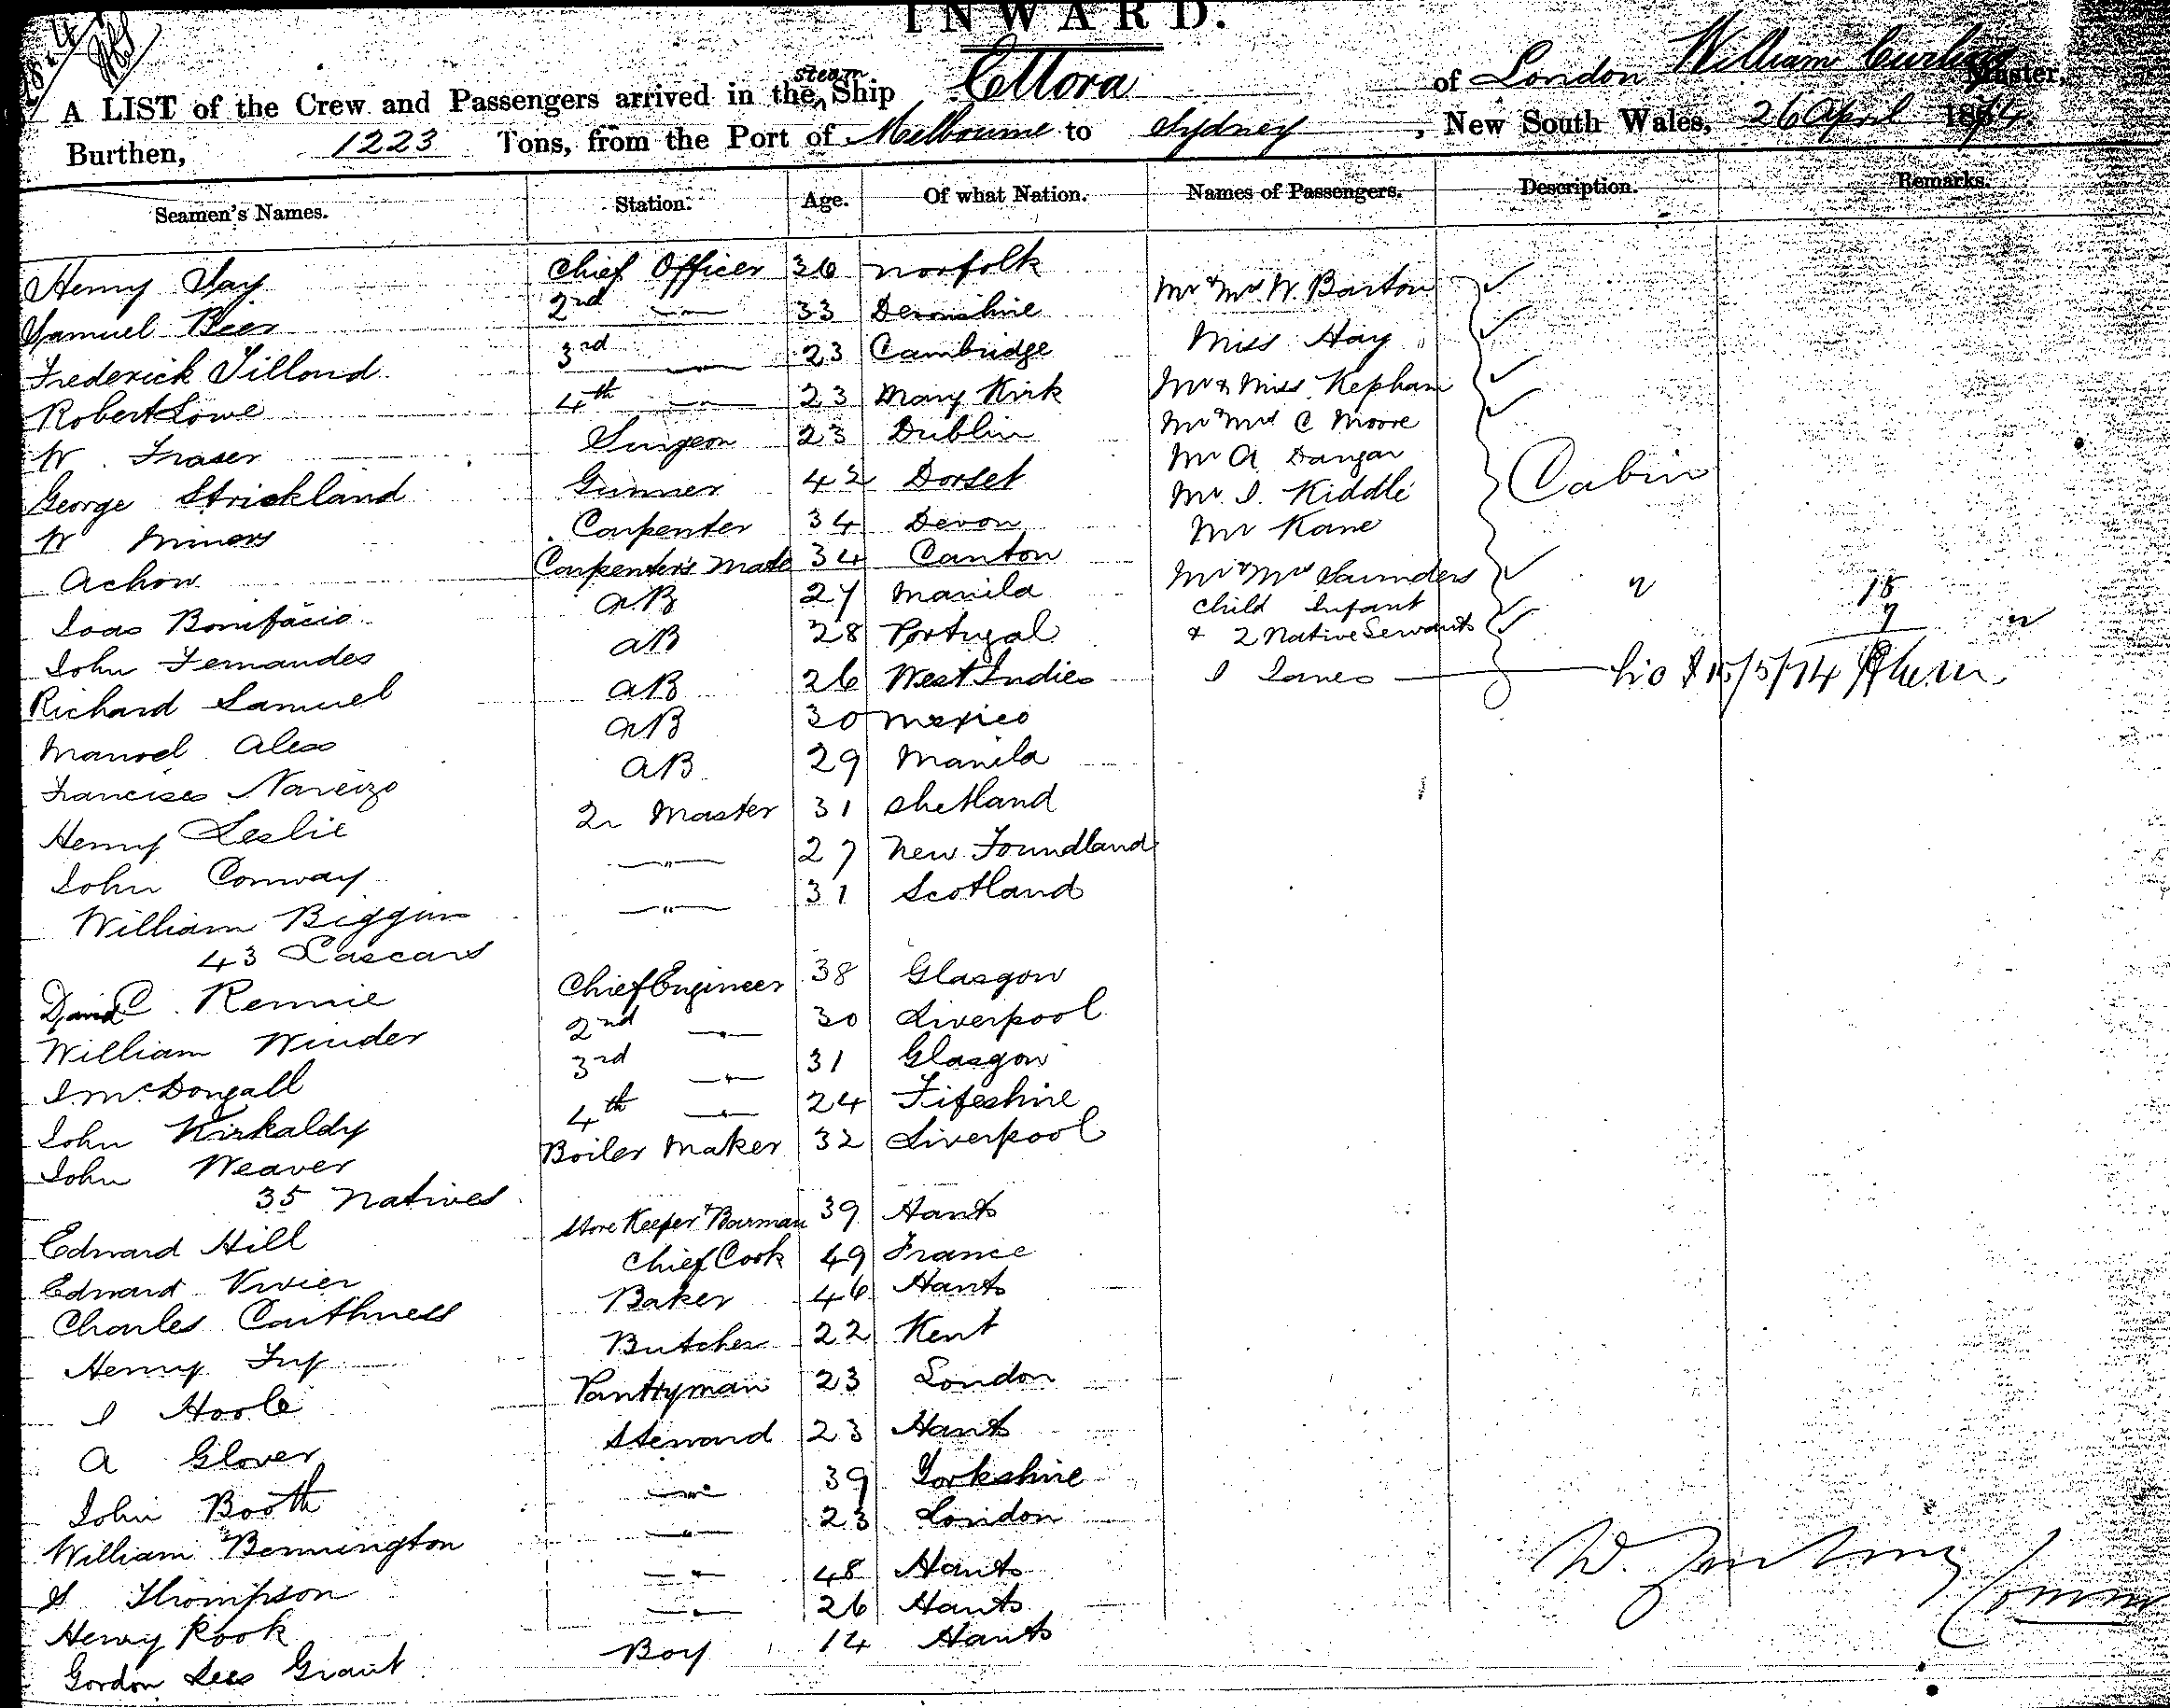 INWARD.
A LIST of the Crew and Passengers arrived in the steam Ship Ellora of London William Curling Master,
Burthen, 1223 Tons, from the Port of Melbourne to Sydney, New South Wales, 26 April 1874.
Seamen's Names. Station. Age. Of what Nation. Names of Passengers. Description. Remarks.
Henry Day Chief Officer 36 Norfolk Mr & Mrs W. Barton
Samuel Beer 2nd —"— 33 Devonshire Miss Hay
Frederick Tillond 3rd —"— 23 Cambridge Mr & Miss Kepham
Robert Lowe 4th —"— 23 Mary Kirk Mr & Mrs C Moore
W. Fraser Surgeon 23 Dublin Mr A Dangar
George Strickland Gunner 42 Dorset Mr I. Kiddle Cabin
W Miners Carpenter 34 Devon Mr Kane
Achow Carpenter's Mate 34 Canton Mr & Mrs Saunders
Joas Bonifacio AB 27 Manila Child Infant 18
John Fernandes AB 28 Portugal & 2 Native Servants 7
Richard Samuel AB 26 West Indies I Jones 15/5/74
Manoel Aleso AB 30 Mexico
Francisco Narcizo AB 29 Manila
Henry Leslie 2r Master 31 Shetland
John Conway —"— 27 New Foundland
William Biggins —"— 31 Scotland
43 Lascars
David C. Rennie Chief Engineer 38 Glasgow
William Winder 2nd —"— 30 Liverpool
I. McDongall 3rd —"— 31 Glasgow
John Kirkaldy 4th —"— 24 Fifeshire
John Weaver Boiler Maker 32 Liverpool
35 Natives
Edward Hill Store Keeper & Barman 39 Hants
Edward Vivier Chief Cook 49 France
Charles Caithness Baker 46 Hants
Henry Fry Butcher 22 Kent
I Hoole Pantryman 23 London
A Glover Steward 23 Hants
John Booth —"— 39 Yorkshire
William Bennington —"— 23 London
S Thompson —"— 48 Hants
Henry Rook —"— 26 Hants
Gordon Lees Grant Boy 14 Hants